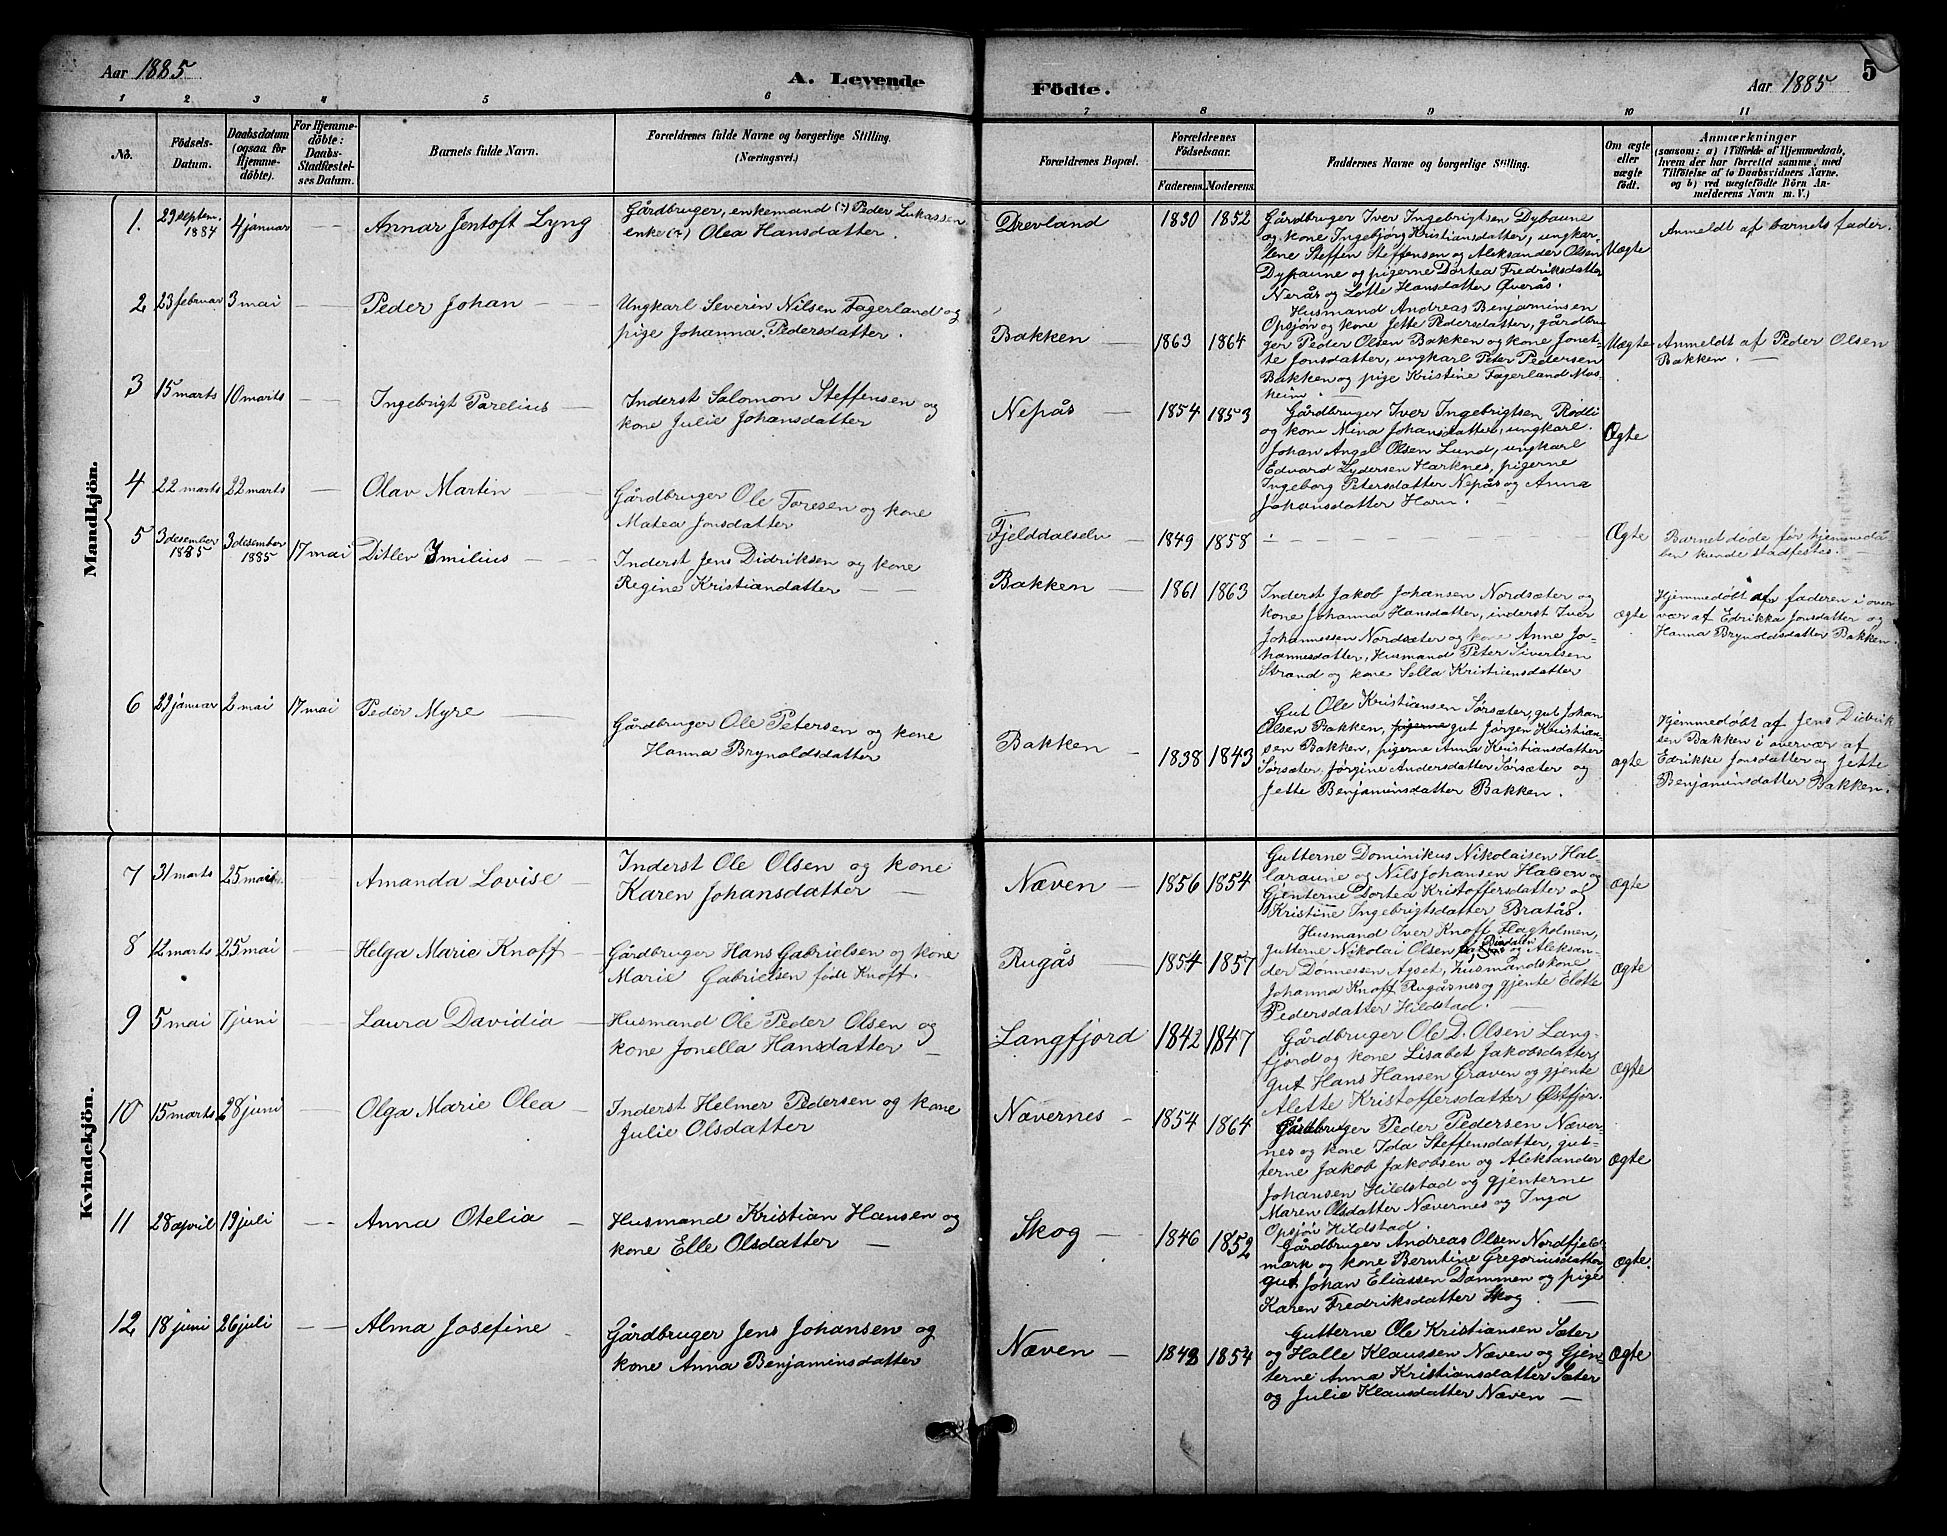 Aar 1885
A. Levende
1 2 3 4 5 6
No.
Födsels-
Datum.
Daabsdatum
(ogsaa for
Hjemme-
döbte).
For Hjemme-
döbte:
Daabs-
Stadfæstel-
ses Datum.
Barnets fulde Navn.
Forældrenes fulde Navne og borgerlige Stilling.
(Næringsvei.)
Mandkjön.
1. 29 septem. 4 januar — Annar Jentoft Lyng Gårdbruger, enkemand (:) Peder Lukassen
1884 enke (:) Olea Hansdatter.
2 23 februar 3 mai — Peder Johan — Ungkarl Severin Nilsen Fagerland og
pige Johanna Pedersdatter.
3 15 marts 10 marts Ingebrigt Parelius — Inderst Salomon Steffensen og
kone Julie Johansdatter
4 22 marts 22 marts — Olav Martin — Gårdbruger Ole Toresen og kone
Matea Jonsdatter
5 3 desember 3 desember 17 mai Ditlev Imilius — Inderst Jens Didriksen og kone
1885 1885 Regine Kristiandatter —
6 29 januar 2 mai 17 mai Peder Myre — Gårdbruger Ole Petersen og kone
Hanna Brynoldsdatter
Kvindekjön.
7 31 marts 25 mai — Amanda Lovise — Inderst Ole Olsen og kone
Karen Johansdatter —
8 12 marts 25 mai — Helga Marie Knoff — Gårdbruger Hans Gabrielsen og kone
Marie Gabrielsen født Knoff.
9 5 mai 7 juni — Laura Davidia — Husmand Ole Peder Olsen og
kone Jonella Hansdatter —
10 15 marts 28 juni — Olga Marie Olea — Inderst Helmer Pedersen og kone
Julie Olsdatter
11 28 april 19 juli — Anna Otelia — Husmand Kristian Hansen og
kone Elle Olsdatter —
12 18 juni 26 juli — Alma Josefine — Gårdbruger Jens Johansen og
kone Anna Benjaminsdatter
Födte.
Aar 1885
5
7 8 9 10 11
Forældrenes Bopæl.
Forældrenes
Födselsaar.
Faderens. Moderens.
Faddernes Navne og borgerlige Stilling.
Om ægte
eller
uægte
födt.
Anmærkninger
(saasom: a) i Tilfælde af Hjemmedaab,
hvem der har forrettet samme, med
Tilföielse af to Daabsvidners Navne.
og b) ved uegtefödte Börn An-
melderens Navn m. V.)
Drevland 1830 1852 Gårdbruger Iver Ingebrigtsen Dybaune
og kone Ingebjørg Kristiansdatter, ungkar-
lene Steffen Steffensen og Aleksander Olsen
Dybaune og pigerne Dortea Fredriksdatter
Nerås og Lotte Hansdatter Øverås.
Uægte
Anmeldt af barnets fader.
Bakken — 1863 1864 Husmand Andreas Benjaminsen
Opsjøn og kone Jette Pedersdatter, gårdbru
ger Peder Olsen Bakken og kone Jonet-
te Jonsdatter, ungkarl Peter Pedersen
Bakken og pige Kristine Fagerland Mos-
keim. —
Uægte
Anmeldt af Peder Olsen
Bakken. —
Nepås — 1854 1853 Gårdbruger Iver Ingebrigtsen Rødli
og kone Mina Johansdatter, ungkarl
Johan Angel Olsen Lund, ungkarl
Edvard Lydersen Harknes, pigerne
Ingeborg Petersdatter Nepås og Anna
Johansdatter Horn.
Ægte
Fjelddalselv 1849 1858 — Ægte
Barnet døde før hjemmedå-
ben kunde stadfestes.
Bakken — 1861 1863 Inderst Jakob Johansen Nordsæter og
kone Johanna Hansdatter, inderst Iver
Johannessen Nordsæter og kone Anne Jo-
hannesdatter, Husmand Peter Sivertsen
Strand og kone Sella Kristiansdatter
ægte
Hjemmedøbt af faderen i over
vær af Edrikka Jonsdatter og
Hanna Brynoldsdatter Bakken.
Bakken — 1838 1843 Gut Ole Kristiansen Sørsæter, gut Johan
Olsen Bakken, pigerne gut Jørgen Kristian-
sen Bakken, pigerne Anna Kristiansdatter
Sørsæter, Jørgine Andersdatter Sørsæter og
Jette Benjaminsdatter Bakken.
ægte
Hjemmedøbt af Jens Didrik
sen Bakken i overvær af
Edrikke Jonsdatter og Jette
Benjaminsdatter Bakken.
Næven — 1856 1854 Gutterne Dominikus Nikolaisen Hal-
laraune og Nils Johansen Halsen og
Gjenterne Dortea Kristoffersdatter og
Kristine Ingebrigtsdatter Bratås.
ægte
Rugås — 1854 1857 Husmand Iver Knoff Flagholmen,
gutterne Nikolai Olsen Aleksan-
der Donnessen Agset, Husmandskone
Johanna Knoff Rugåsnes og gjente Elotte
Pedersdatter Hildstad. —
ægte
Langfjord 1842 1847 Gårdbruger Ole D. Olsen Lang-
fjord og kone Lisabet Jakobsdatter,
gut Hans Hansen Graven og gjente
Alette Kristoffersdatter Østfjor.
ægte
Nævernes — 1854 1864 Gårdbruger Peder Pedersen Næver-
nes og kone Ida Steffensdatter, gut-
terne Jakob Jakobsen og Aleksander
Johansen Hildstad og gjenterne
Maren Olsdatter Nævernes og Inga
Opsjøn Hildstad.
ægte
Skog — 1846 1852 Gårdbruger Andreas Olsen Nordfjeld-
mark og kone Berntine Gregoriusdatter,
gut Johan Eliassen Dommen og pige
Karen Fredriksdatter Skog —
ægte.
Næven — 1848 1854 Gutterne Ole Kristiansen Sæter
og Halle Klaussen Næven og Gjen-
terne Anna Kristiansdatter Sæter
og Julie Klausdatter Næven —
ægte